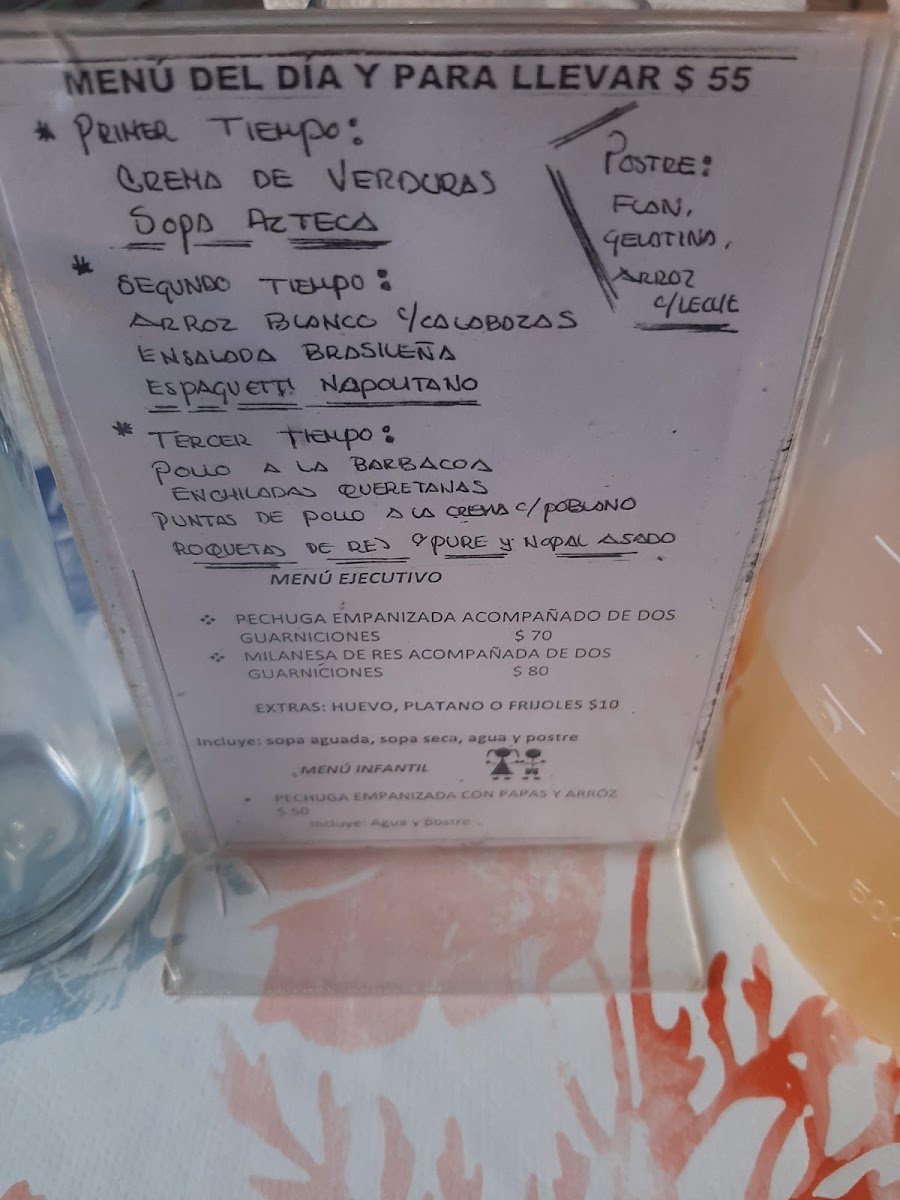 MENÚ DEL DÍA Y PARA LLEVAR $ 55
* PRIMER TIEMPO:
CREMA DE VERDURAS
SOPA AZTECA
POSTRE:
FLAN,
GELATINA,
ARROZ
C/LECHE
* SEGUNDO TIEMPO:
ARROZ BLANCO C/CALABAZAS
ENSALADA BRASILEÑA
ESPAGUETTI NAPOLITANO
* TERCER TIEMPO:
POLLO A LA BARBACOA
ENCHILADAS QUERETANAS
PUNTAS DE POLLO A LA CREMA C/POBLANO
ROQUETAS DE RES C/PURE Y NOPAL ASADO
MENÚ EJECUTIVO
❖ PECHUGA EMPANIZADA ACOMPAÑADO DE DOS
GUARNICIONES $ 70
❖ MILANESA DE RES ACOMPAÑADA DE DOS
GUARNICIONES $ 80
EXTRAS: HUEVO, PLATANO O FRIJOLES $10
Incluye: sopa aguada, sopa seca, agua y postre
MENÚ INFANTIL
• PECHUGA EMPANIZADA CON PAPAS Y ARROZ
$ 50
Incluye: Agua y postre